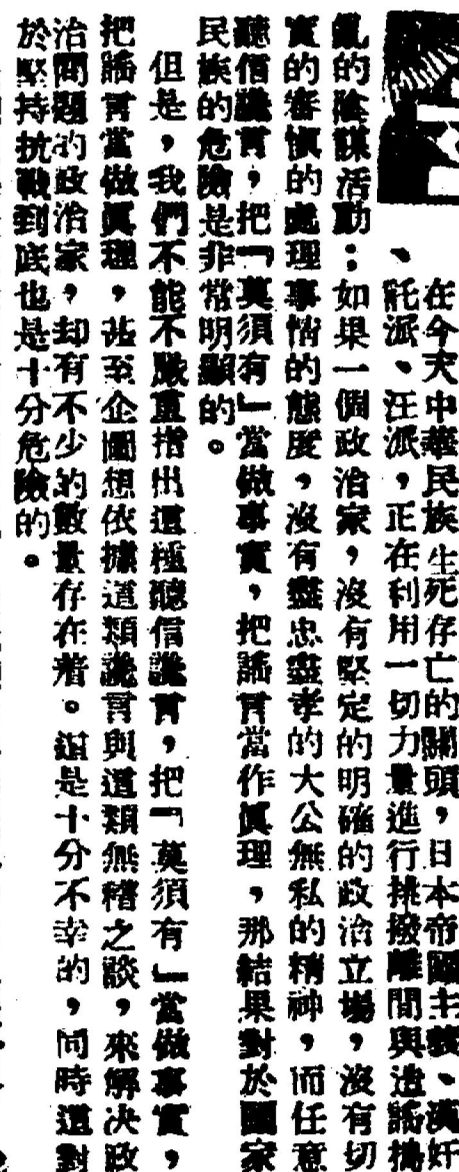 在今天中華民族生死存亡的關頭,日本帝國主義、漢奸
、託派、汪派,正在利用一切力量進行挑撥離間與造謠搗
亂的陰謀活動;如果一個政治家,沒有堅定的明確的政治立場,沒有切
實的審愼的處理事情的態度,沒有盡忠盡孝的大公無私的精神,而任意
聽信讒言,把「莫須有」當做事實,把謠言當作眞理,那結果對於國家
民族的危險是非常明顯的。
但是,我們不能不嚴重指出這種聽信讒言,把「莫須有」當做事實,
把謠言當做眞理,甚至企圖想依據這類讒言與這類無稽之談,來解決政
治問題的政治家,却有不少的數量存在着。這是十分不幸的,同時這對
於堅持抗戰到底也是十分危險的。